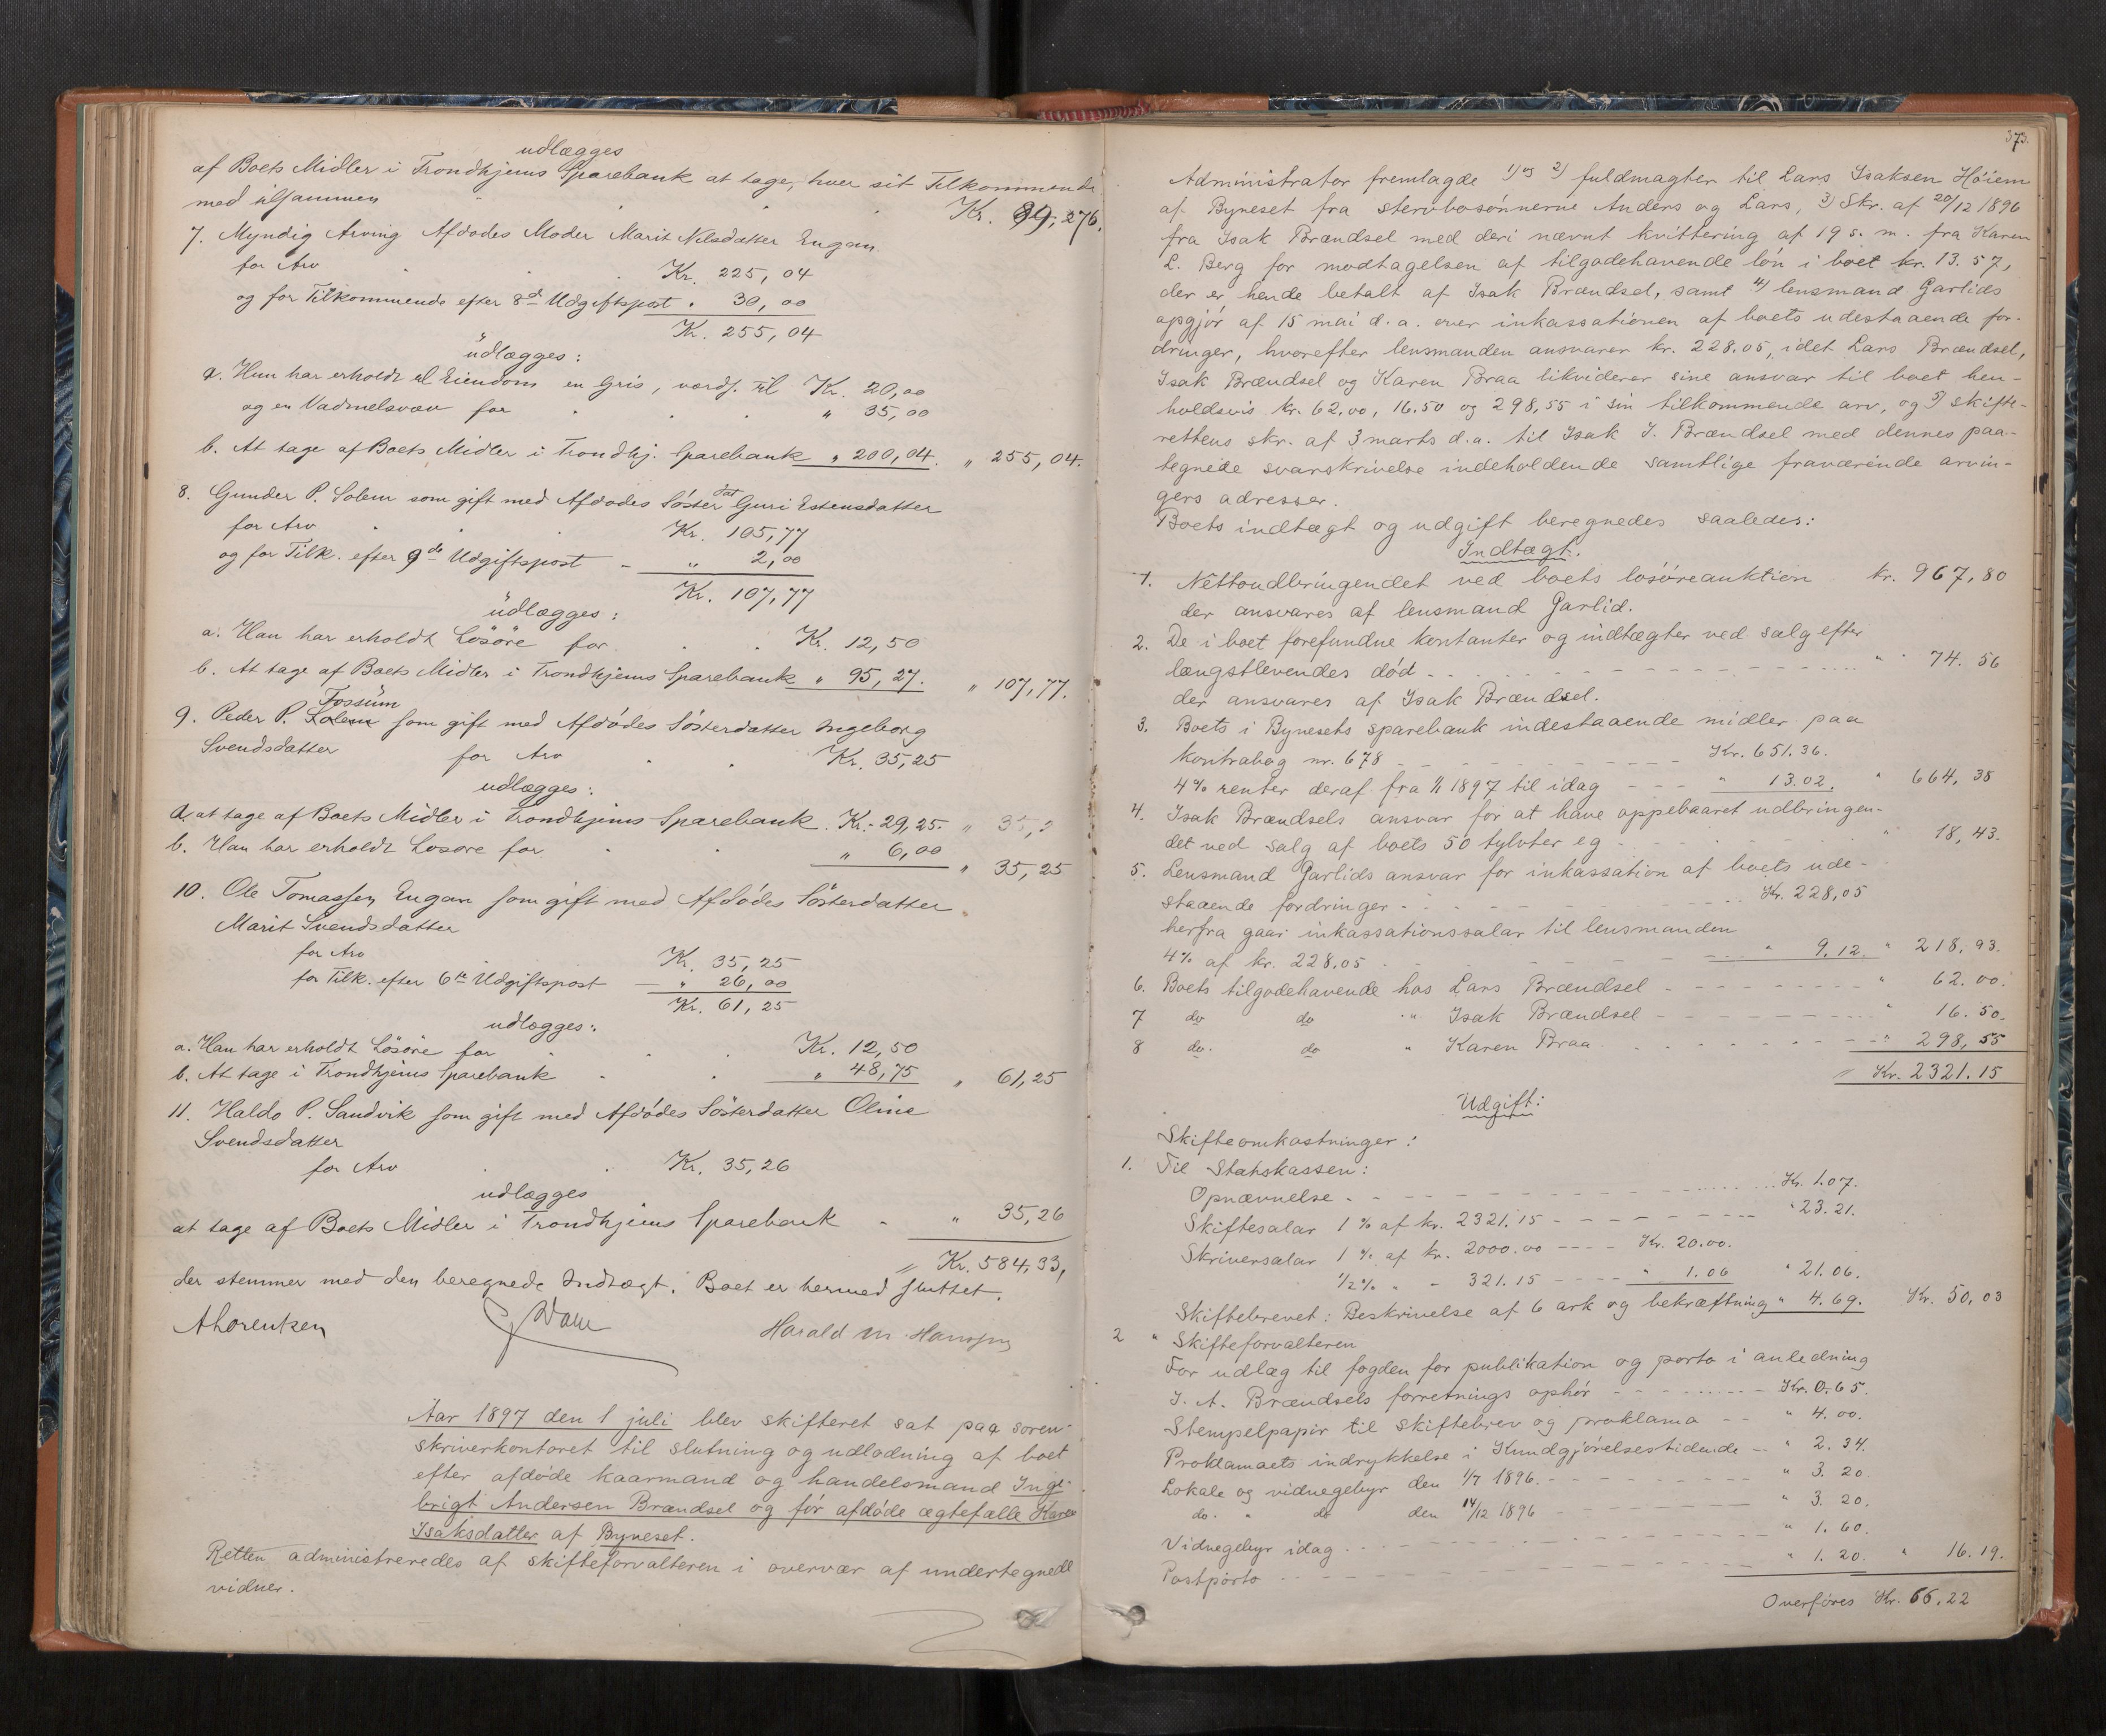 udlægges
af Boets Midler i Trondhjems Sparebank at tage, hver sit Tilkommende
med tilsammen Kr. 89,276.
7. Myndig Arving Afdødes Moder Marit Nilsdatter Engan
for Arv Kr. 225,04
og for Tilkommende efter 8de Udgiftspost " 30,00
Kr. 255,04
udlægges:
a. Hun har erholdt til Eiendom en Gris, værdf. til Kr. 20,00
og en Vadmelsvæv for " 35,00
b. At tage af Boets Midler i Trondhj. Sparebank " 200,04. " 255,04.
8. Gunder P. Solem som gift med Afdødes Søsterdat Guri Estensdatter
for Arv Kr. 105,77
og for Tilk. efter 9de Udgiftspost - " 2,00
Kr. 107,77
udlægges:
a. Han har erholdt Løsøre for Kr. 12,50
b. At tage af Boets Midler i Trondhjems Sparebank " 95,27. " 107,77.
Fossum
9. Peder P. Solem som gift med Afdødes Søsterdatter Ingeborg
Svendsdatter for Arv Kr. 35,25
udlægges:
a. at tage af Boets Midler i Trondhjems Sparebank Kr. 29,25.
b. Han har erholdt Løsøre for " 6,00 " 35,25
10. Ole Tomassen Engan som gift med Afdødes Søsterdatter
Marit Svendsdatter
for Arv Kr. 35,25
for Tilk. efter 6te Udgiftspost - " 26,00
Kr. 61,25
udlægges:
a. Han har erholdt Løsøre for Kr. 12,50
b. At tage i Trondhjems Sparebank " 48,75 " 61,25
11. Haldo P. Sandvik som gift med Afdødes Søsterdatter Oline
Svendsdatter
for Arv Kr. 35,26
udlægges
at tage af Boets Midler i Trondhjems Sparebank - " 35,26
Kr. 584,33,
der stemmer med den beregnede Indtægt. Boet er hermed sluttet.
Harald M. Hansen
Aar 1897 den 1 juli blev skifteret sat paa soren-
skriverkontoret til slutning og udlodning af boet
efter afdøde kaarmand og handelsmand Inge-
brigt Andersen Brændsel og før afdøde ægtefælle Karen
Isaksdatter af Byneset.
Retten administreredes af skifteforvalteren i overvær af undertegnede
vidner.
373.
Administrator fremlagde 1) og 2) fuldmagter til Lars Isaksen Høiem
af Byneset fra stervbosønnerne Anders og Lars, 3) Skr. af 20/12 1896
fra Isak Brændsel med deri nævnt kvittering af 19 s. m. fra Karen
L. Berg for modtagelsen af tilgodehavende løn i boet kr. 13.57,
der er hende betalt af Isak Brændsel, samt 4) lensmand Garlids
opgjør af 15 mai d. a. over inkassationen af boets udestaaende for-
dringer, hvorefter lensmanden ansvarer kr. 228.05, idet Lars Brændsel,
Isak Brændsel og Karen Braa likviderer sine ansvar til boet hen-
holdsvis kr. 62,00, 16.50 og 298,55 i sin tilkommende arv, og 5) skifte-
rettens skr. af 3 marts d.a. til Isak I. Brændsel med dennes paa-
tegnede svarskrivelse indeholdende samtlige fraværende arvin-
gers adresser.
Boets indtægt og udgift beregnedes saaledes:
Indtægt.
1. Nettoudbringendet ved boets løsøreauktion kr. 967,80
der ansvares af lensmand Garlid.
2. De i boet forefundne kontanter og indtægter ved salg efter
længstlevendes død " 74.56
der ansvares af Isak Brændsel.
3. Boets i Bynesets sparebank indestaaende midler paa
kontrabog nr. 678 Kr. 651.36.
4% renter deraf fra 1/1 1897 til idag " 13.02. " 664,38
4. Isak Brændsels ansvar for at have oppebaaret udbringen-
det ved salg af boets 50 tylvter eg " 18,43.
5. Lensmand Garlids ansvar for inkassation af boets ude-
staaende fordringer Kr. 228,05
herfra gaar inkassationssalar til lensmanden
4% af kr. 228.05 " 9.12. " 218,93.
6. Boets tilgodehavende hos Lars Brændsel " 62.00.
7 do do " Isak Brændsel " 16.50.
8 do. do " Karen Braa " 298,55
Kr. 2321.15
Udgift:
Skifteomkostninger:
1. Til Statskassen:
Opnævnelse Kr. 1.07.
Skiftesalar 1% af kr. 2321.15 " 23.21.
Skriversalar 1% af kr. 2000.00 Kr. 20.00.
1/2% " - 321.15 " 1.06 " 21.06.
Skiftebrevet: Beskrivelse af 6 ark og bekræftning " 4.69. Kr. 50,03
2 " Skifteforvalteren
For udlæg til fogden for publikation og porto i anledning
I. A. Brændsels forretnings ophør Kr. 0.65.
Stempelpapir til skiftebrev og proklama " 4.00.
Proklamaets indrykkelse i Kundgjørelsestidende " 2.34.
Lokale og vidnegebyr den 1/7 1896. " 3.20.
do. " do den 14/12 1896 " 3.20.
Vidnegebyr idag " 1.60.
Postporto " 1.20. " 16.19.
Overføres Kr. 66,22